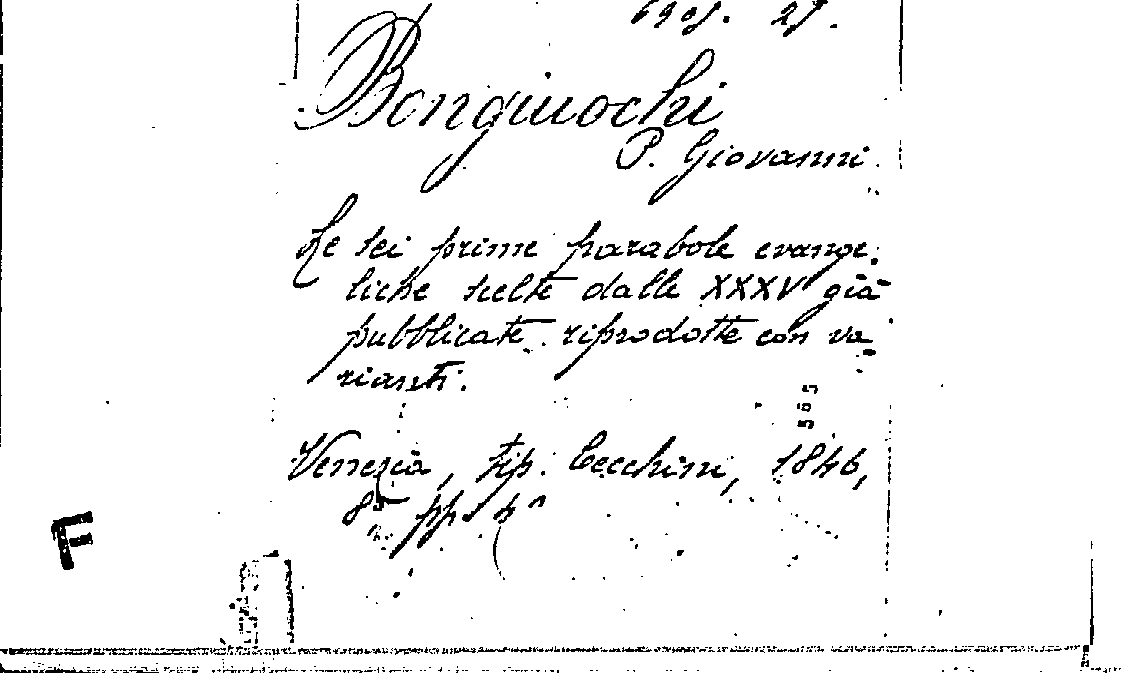 6905. 25.
Bongiuochi
P. Giovanni.
Le sei prime parabole evange-
liche scelte dalle XXXV già
pubblicate riprodotte con va-
rianti.
Venezia, tip. Cecchini, 1846,
8° pp.
F